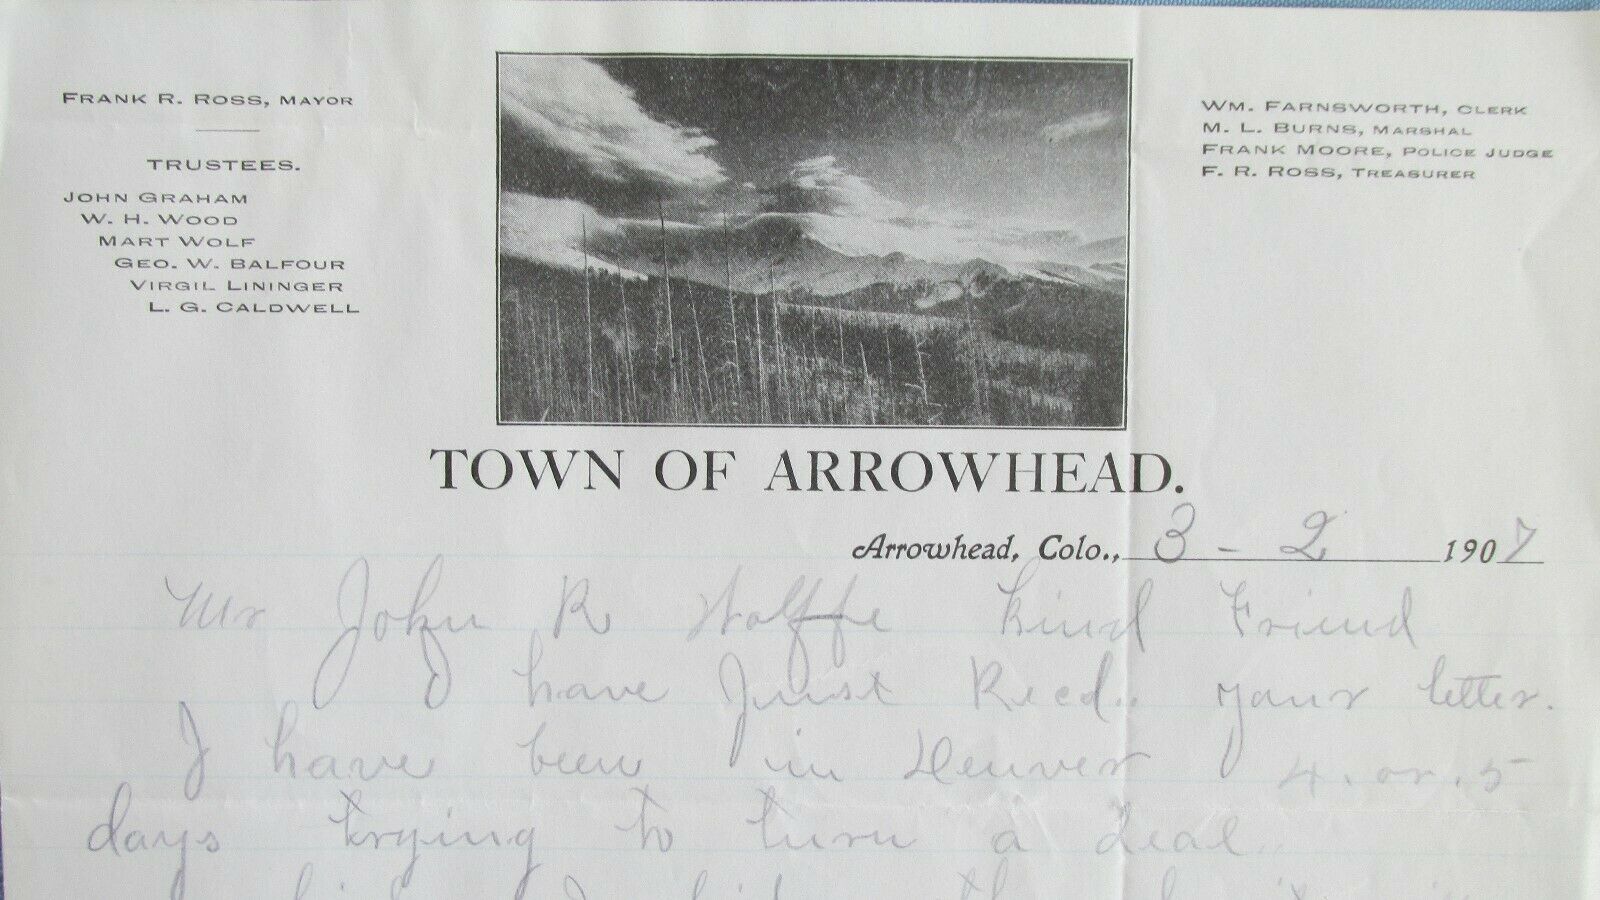 FRANK R. ROSS, MAYOR
TRUSTEES.
JOHN GRAHAM
W. H. WOOD
MART WOLF
GEO. W. BALFOUR
VIRGIL LININGER
L. G. CALDWELL
WM. FARNSWORTH, CLERK
M. L. BURNS, MARSHAL
FRANK MOORE, POLICE JUDGE
F. R. ROSS, TREASURER
TOWN OF ARROWHEAD.
Arrowhead, Colo., 3 - 2 1907
Mr John R Wolffe Kind Friend
I have Just Recd. your letter.
I have been in Denver 4. or. 5
days trying to turn a deal